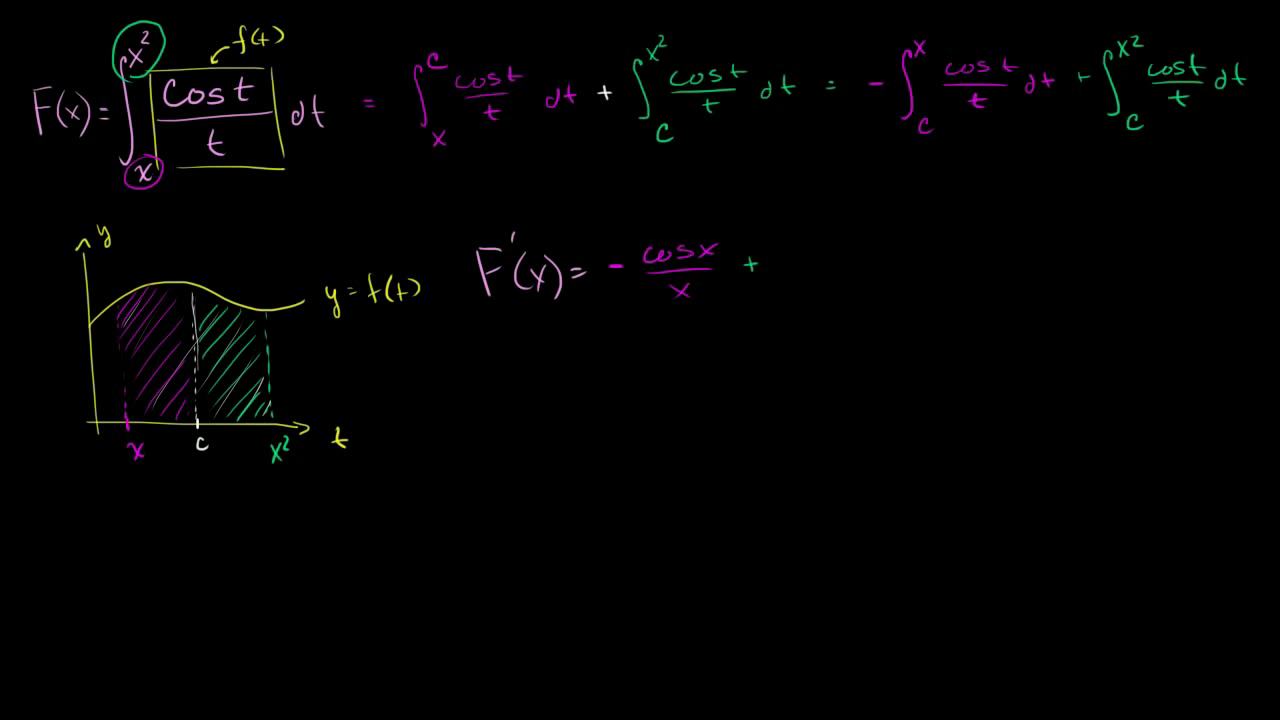 F(x) = ∫_x^{x²} cos t / t dt = ∫_x^c cos t / t dt + ∫_c^{x²} cos t / t dt = - ∫_c^x cos t / t dt + ∫_c^{x²} cos t / t dt
f(t)
y
y = f(t)
x c x² t
F'(x) = - cos x / x +